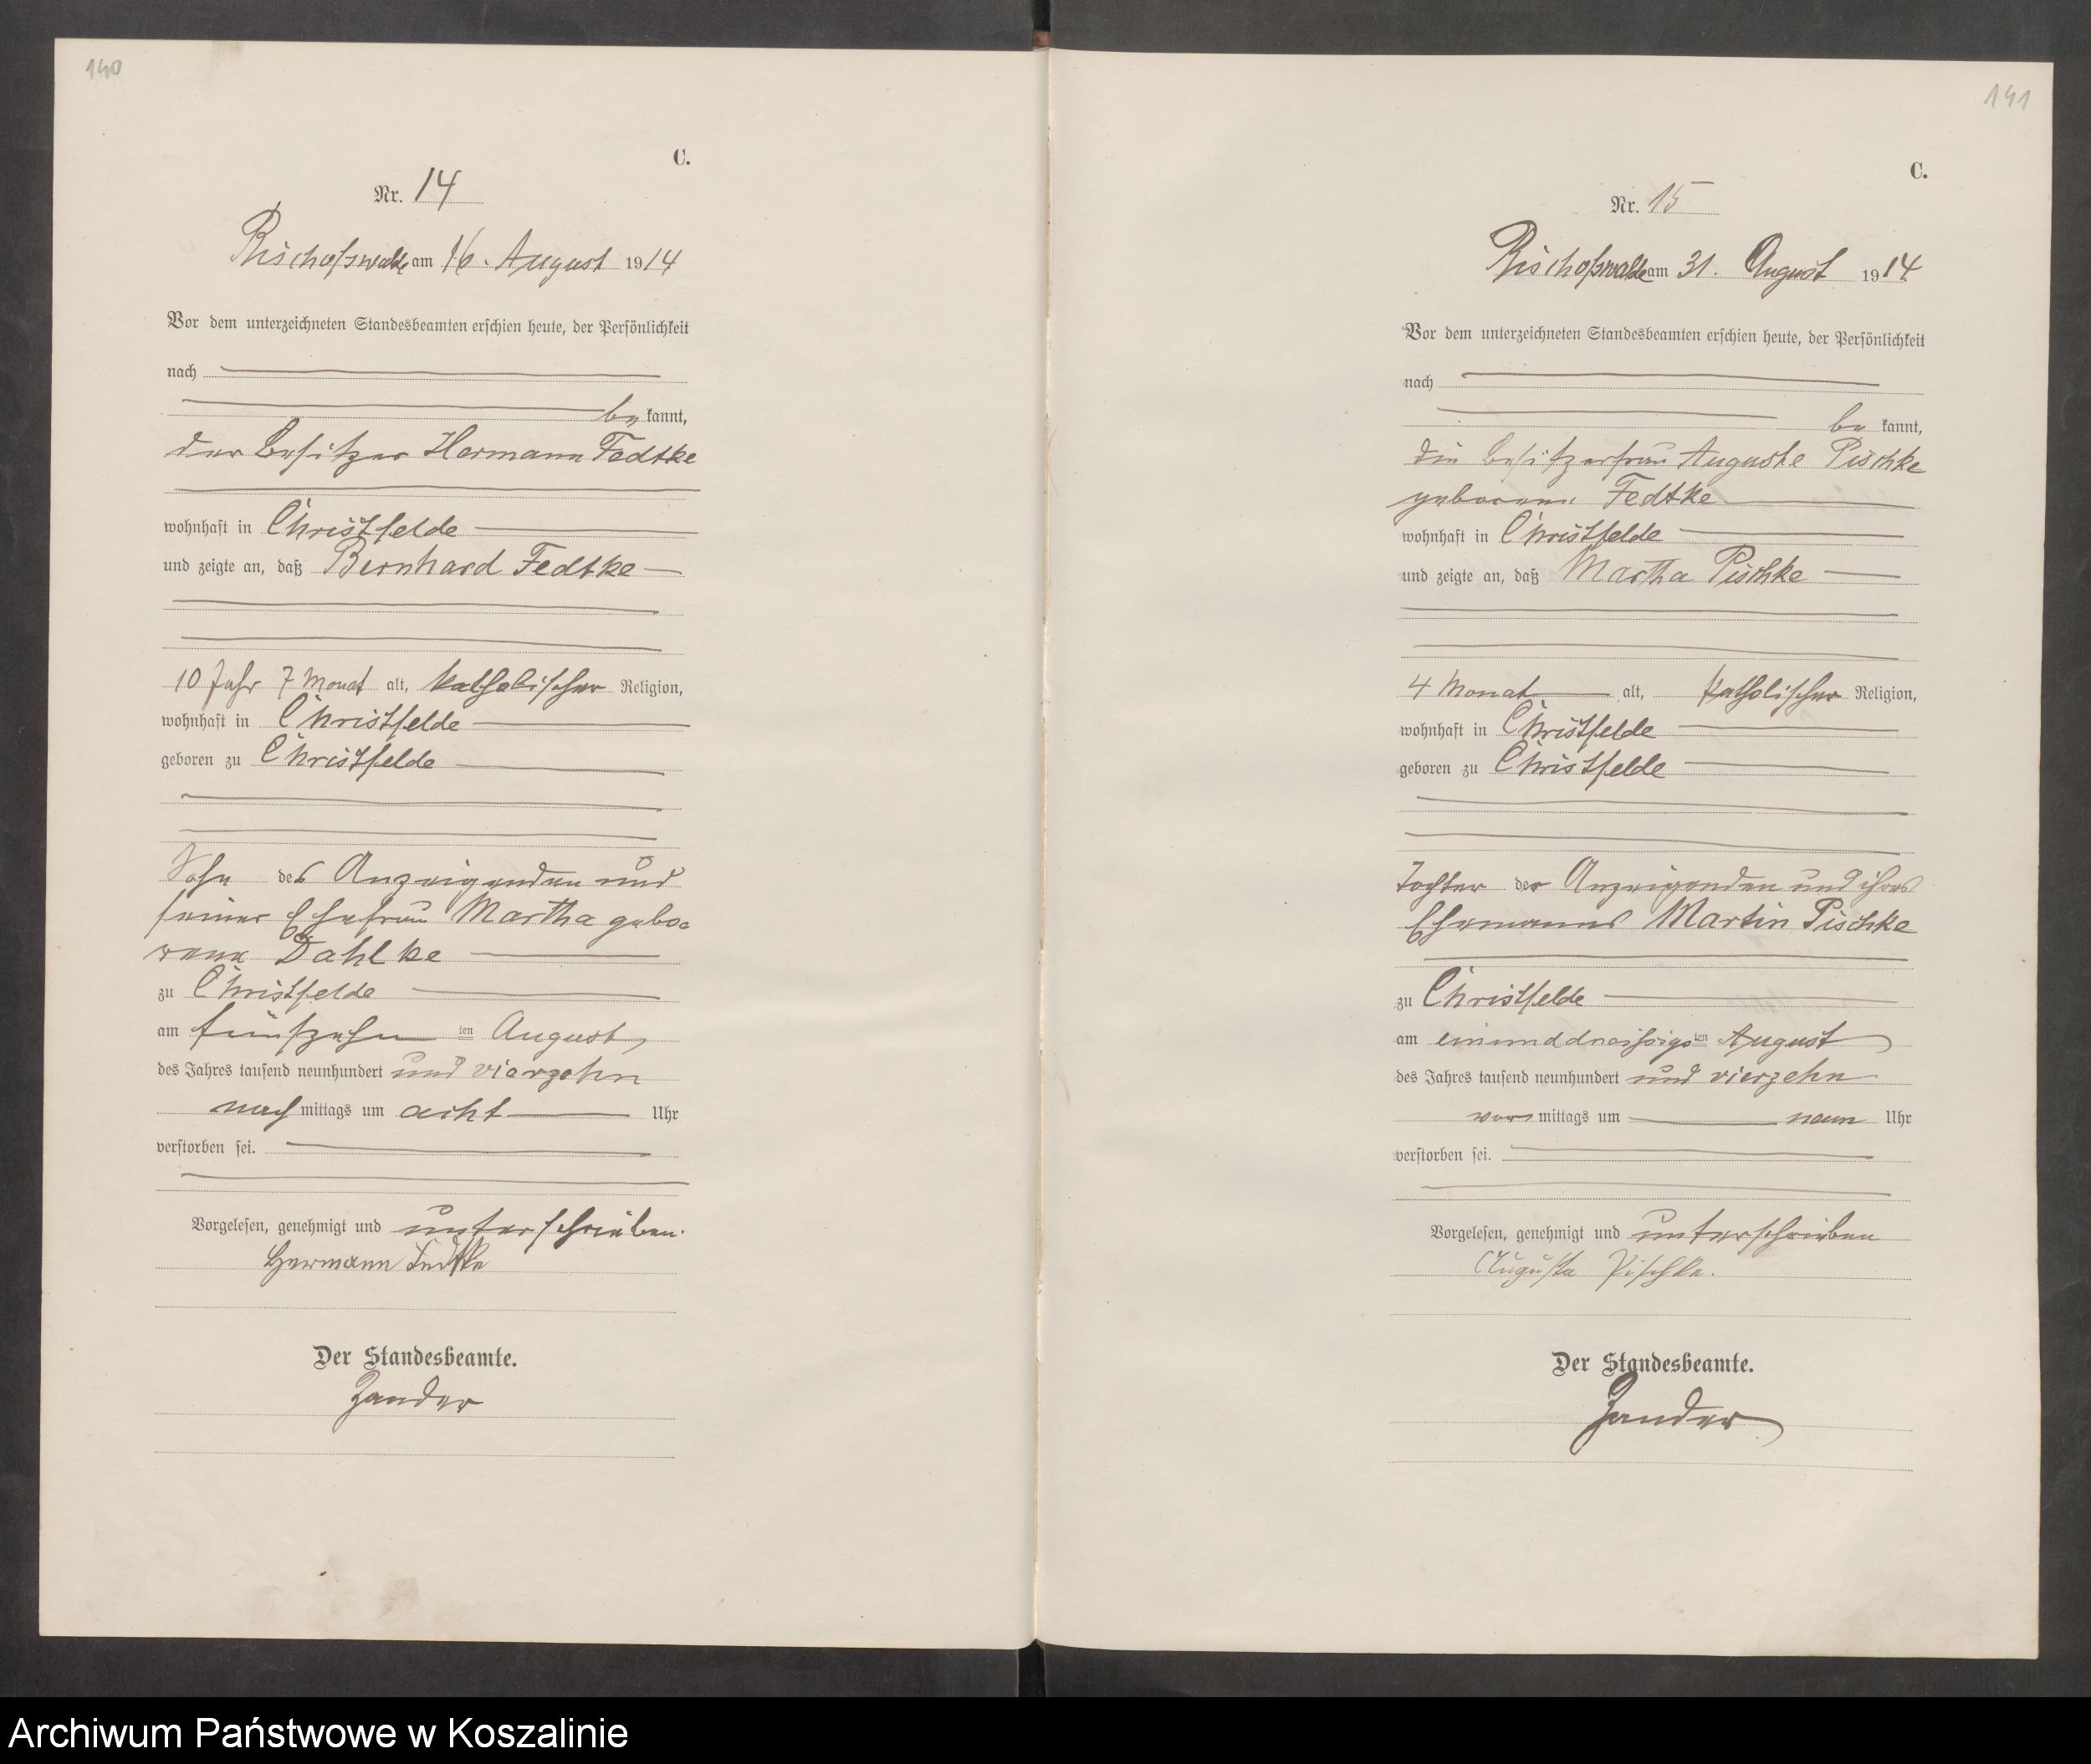 140
C.
Nr. 14
Bischofswalde am 16. August 1914
Vor dem unterzeichneten Standesbeamten erschien heute, der Persönlichkeit
nach
be kannt,
der Besitzer Hermann Fedtke
wohnhaft in Christfelde
und zeigte an, daß Bernhard Fedtke
10 Jahr 7 Monat alt, katholischer Religion,
wohnhaft in Christfelde
geboren zu Christfelde
Sohn des Anzeigenden und
seiner Ehefrau Martha gebo-
rene Dahlke
zu Christfelde
am fünfzehn ten August,
des Jahres tausend neunhundert und vierzehn
nach mittags um acht Uhr
verstorben sei.
Vorgelesen, genehmigt und unterschrieben.
Hermann Fedtke
Der Standesbeamte.
Zander
141
C.
Nr. 15
Bischofswalde am 31. August 1914
Vor dem unterzeichneten Standesbeamten erschien heute, der Persönlichkeit
nach
be kannt,
die Besitzerfrau Auguste Pischke
geborene Fedtke
wohnhaft in Christfelde
und zeigte an, daß Martha Pischke
4 Monat alt, katholischer Religion,
wohnhaft in Christfelde
geboren zu Christfelde
Tochter der Anzeigenden und ihres
Ehemannes Martin Pischke
zu Christfelde
am einunddreissigs ten August
des Jahres tausend neunhundert und vierzehn
vor mittags um neun Uhr
verstorben sei.
Vorgelesen, genehmigt und unterschrieben
Auguste Pischke.
Der Standesbeamte.
Zander
Archiwum Państwowe w Koszalinie